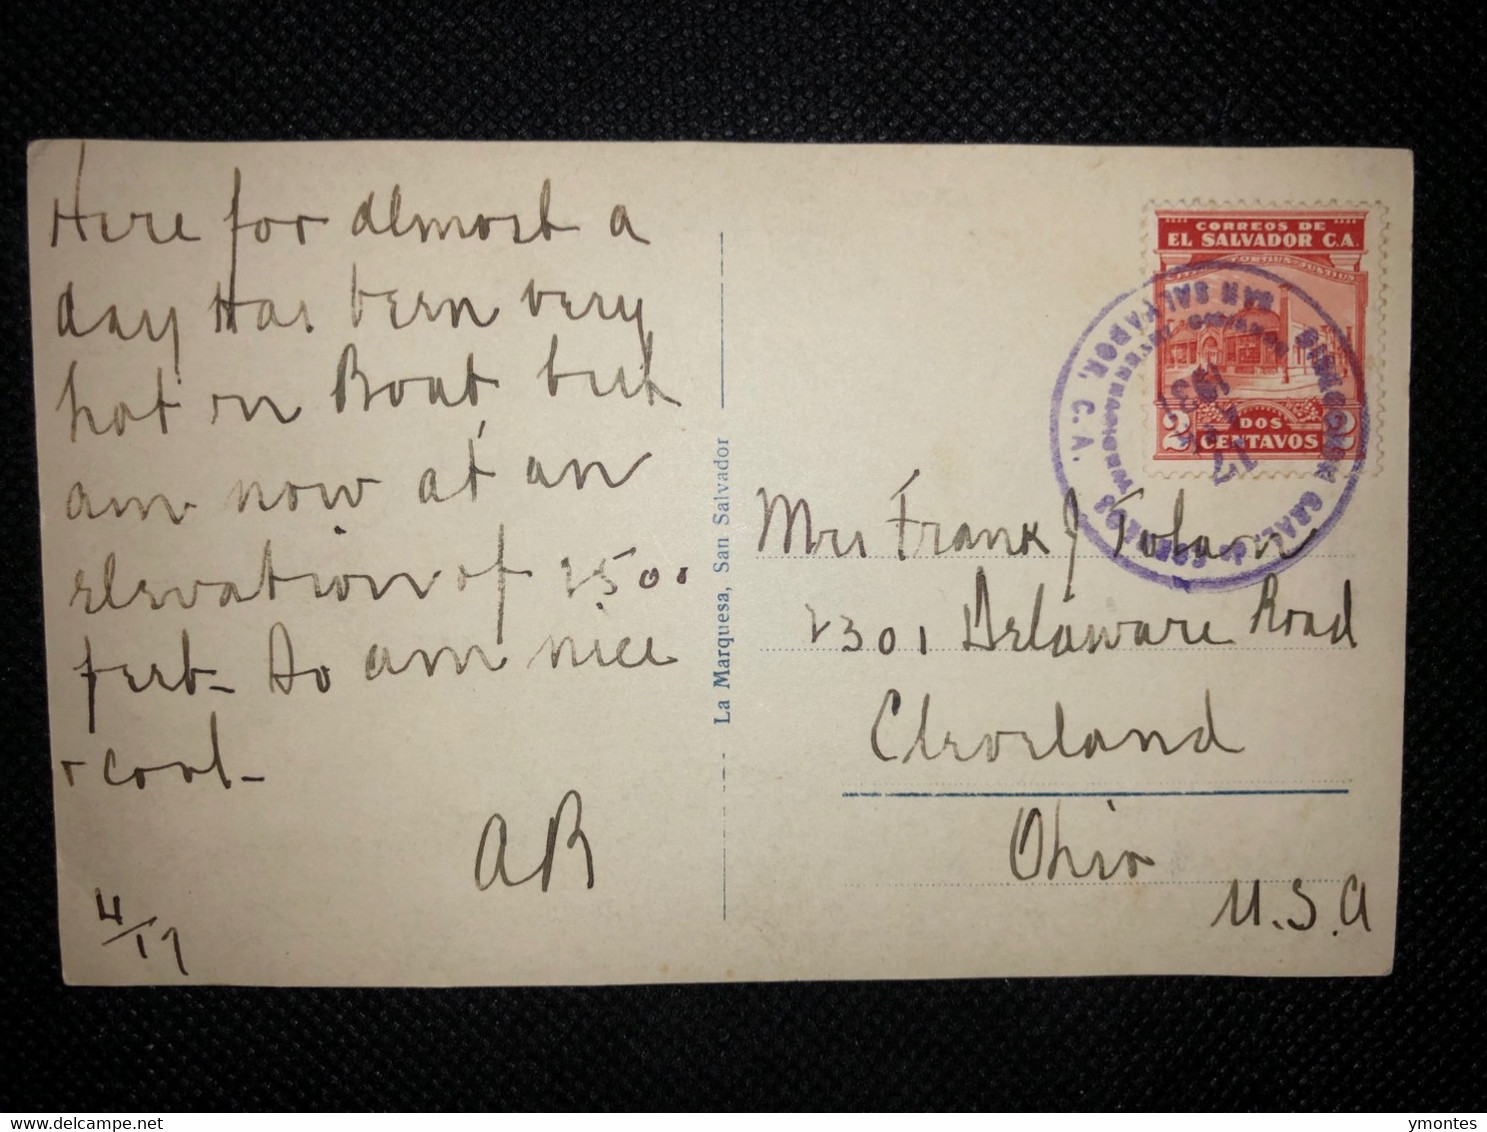 Here for almost a
day Has been very
hot on Boat, but
am now at an
elevation of 2500
feet - So am nice
+ cool -
AB
4/17
La Marquesa, San Salvador
CORREOS DE
EL SALVADOR C.A.
FORTIUS-JUNTIUS
2 DOS 2
CENTAVOS
SAN SALVADOR, C.A.
17
193
Mrs Frank J
2301 Delaware Road
Cleveland
Ohio
U.S.A
delcampe.net
ymontes